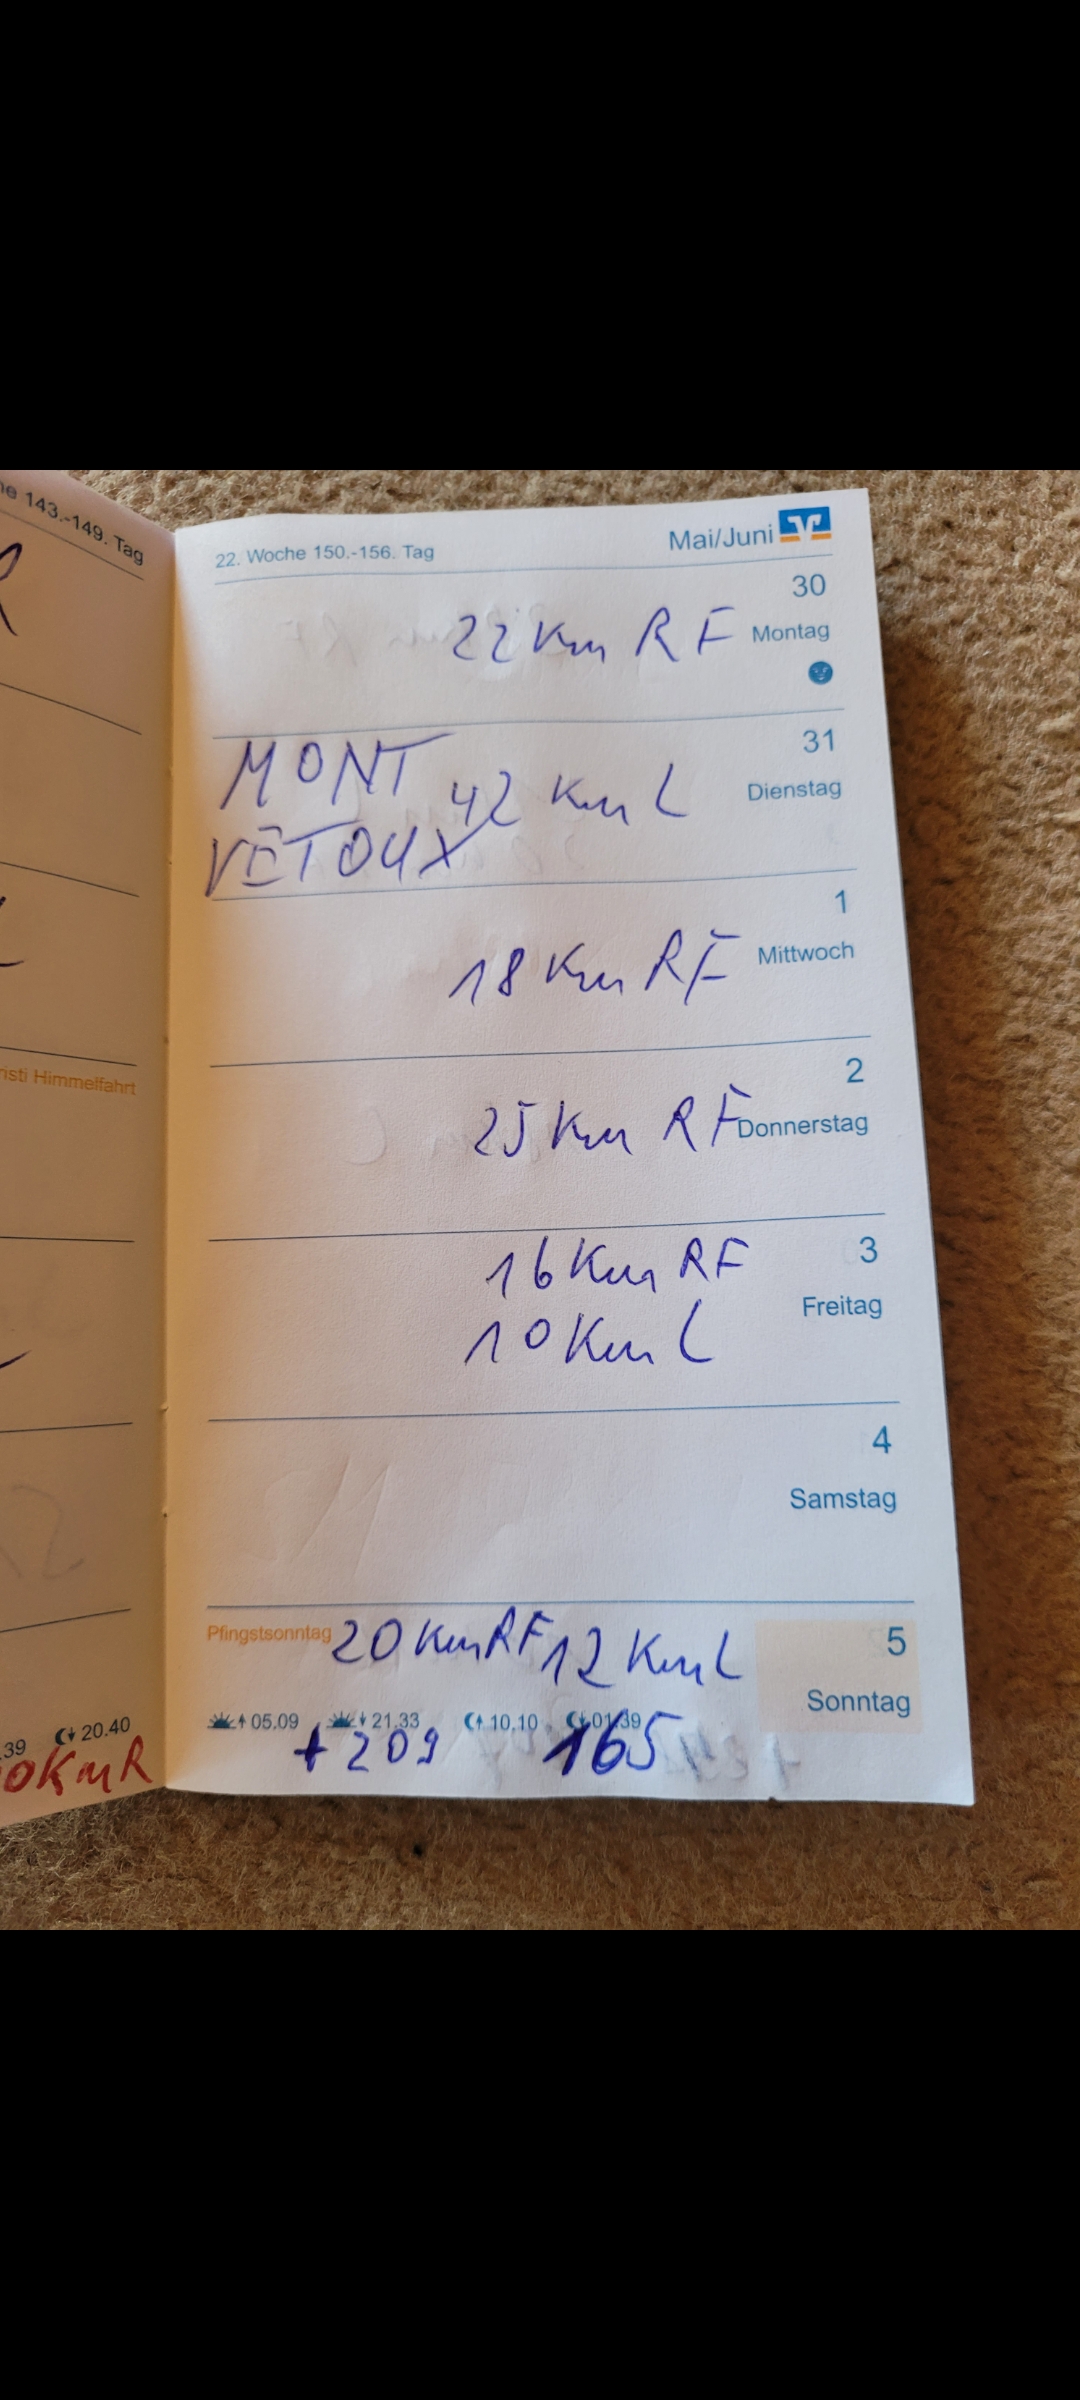 he 143.-149. Tag
risti Himmelfahrt
39 20.40
0KmR
22. Woche 150.-156. Tag
Mai/Juni
30
22 Km RF Montag
31
MONT 42 Km L Dienstag
VETOUX
1
18 Km RF Mittwoch
2
25 Km RF Donnerstag
16 Km RF 3
10 Km L Freitag
4
Samstag
Pfingstsonntag 20 Km RF 12 Km L 5
Sonntag
05.09 21.33 10.10 01.39
+209 165